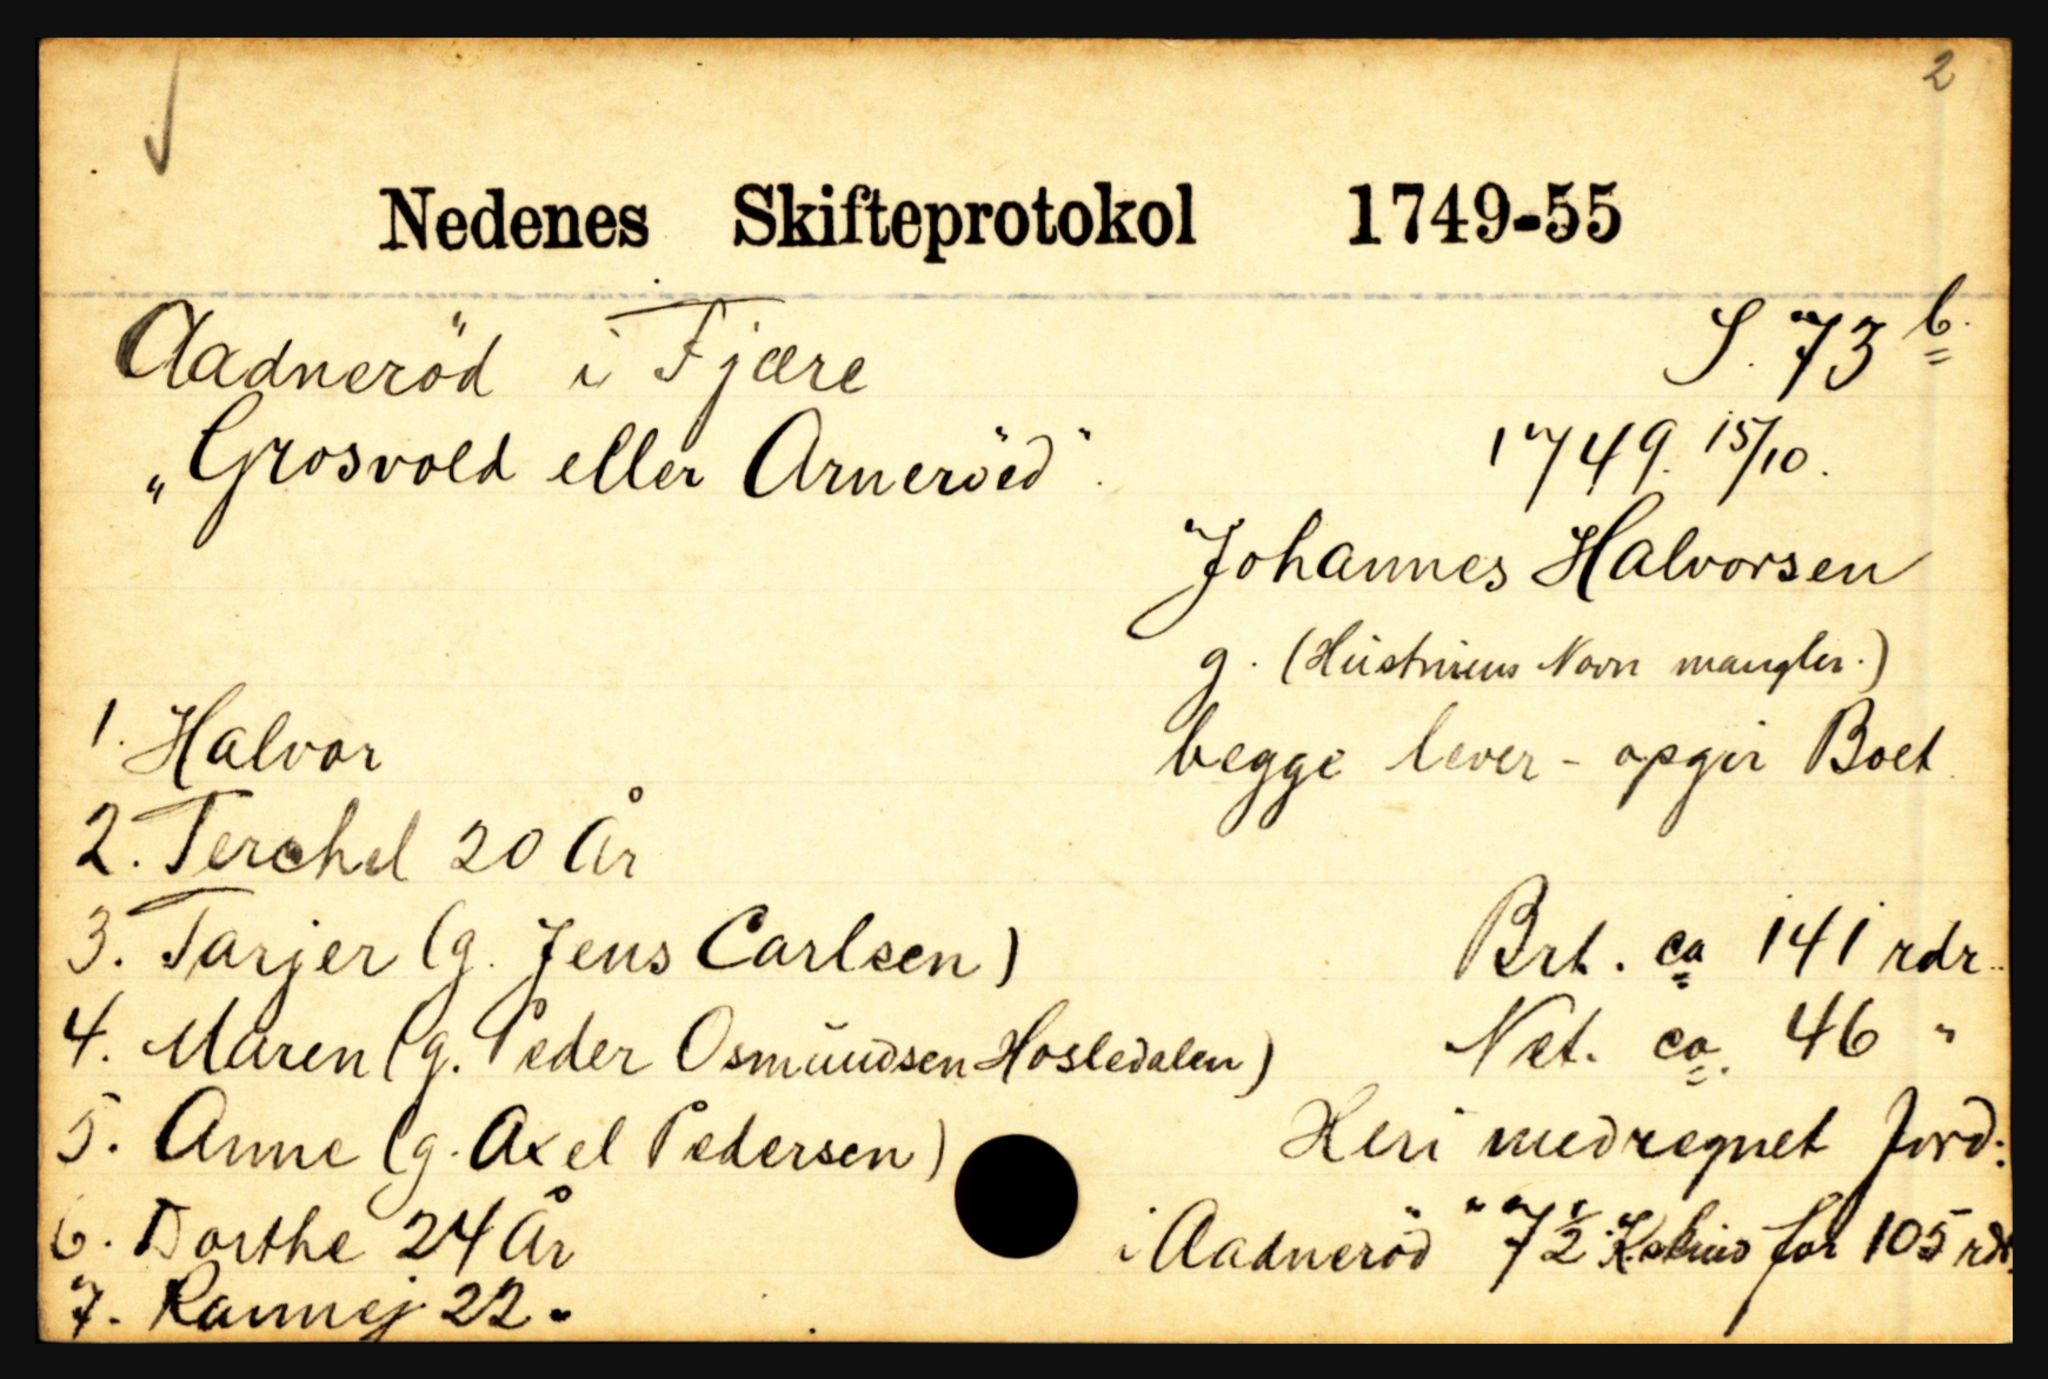 2
Nedenes Skifteprotokol 1749-55
Aadneröd i Fjære S. 73 b.
„Grosvold eller Arneröed". 1749. 15/10.
Johannes Halvorsen
g. (Hustruens Navn mangler.)
1. Halvor begge lever - opgir Boet
2. Terchel 20 År
3. Tarjer (g. Jens Carlsen) Brt. ca 141 rdr.
4. Maren (g. Peder Osmundsen Hosledalen) Net. ca. 46 "
5. Anne (g. Axel Pedersen) Heri medregnet Jord:
6. Dorthe 24 År i Aadneröd " 7 1/2 K.skind for 105 rdr.
7. Rannej 22 "